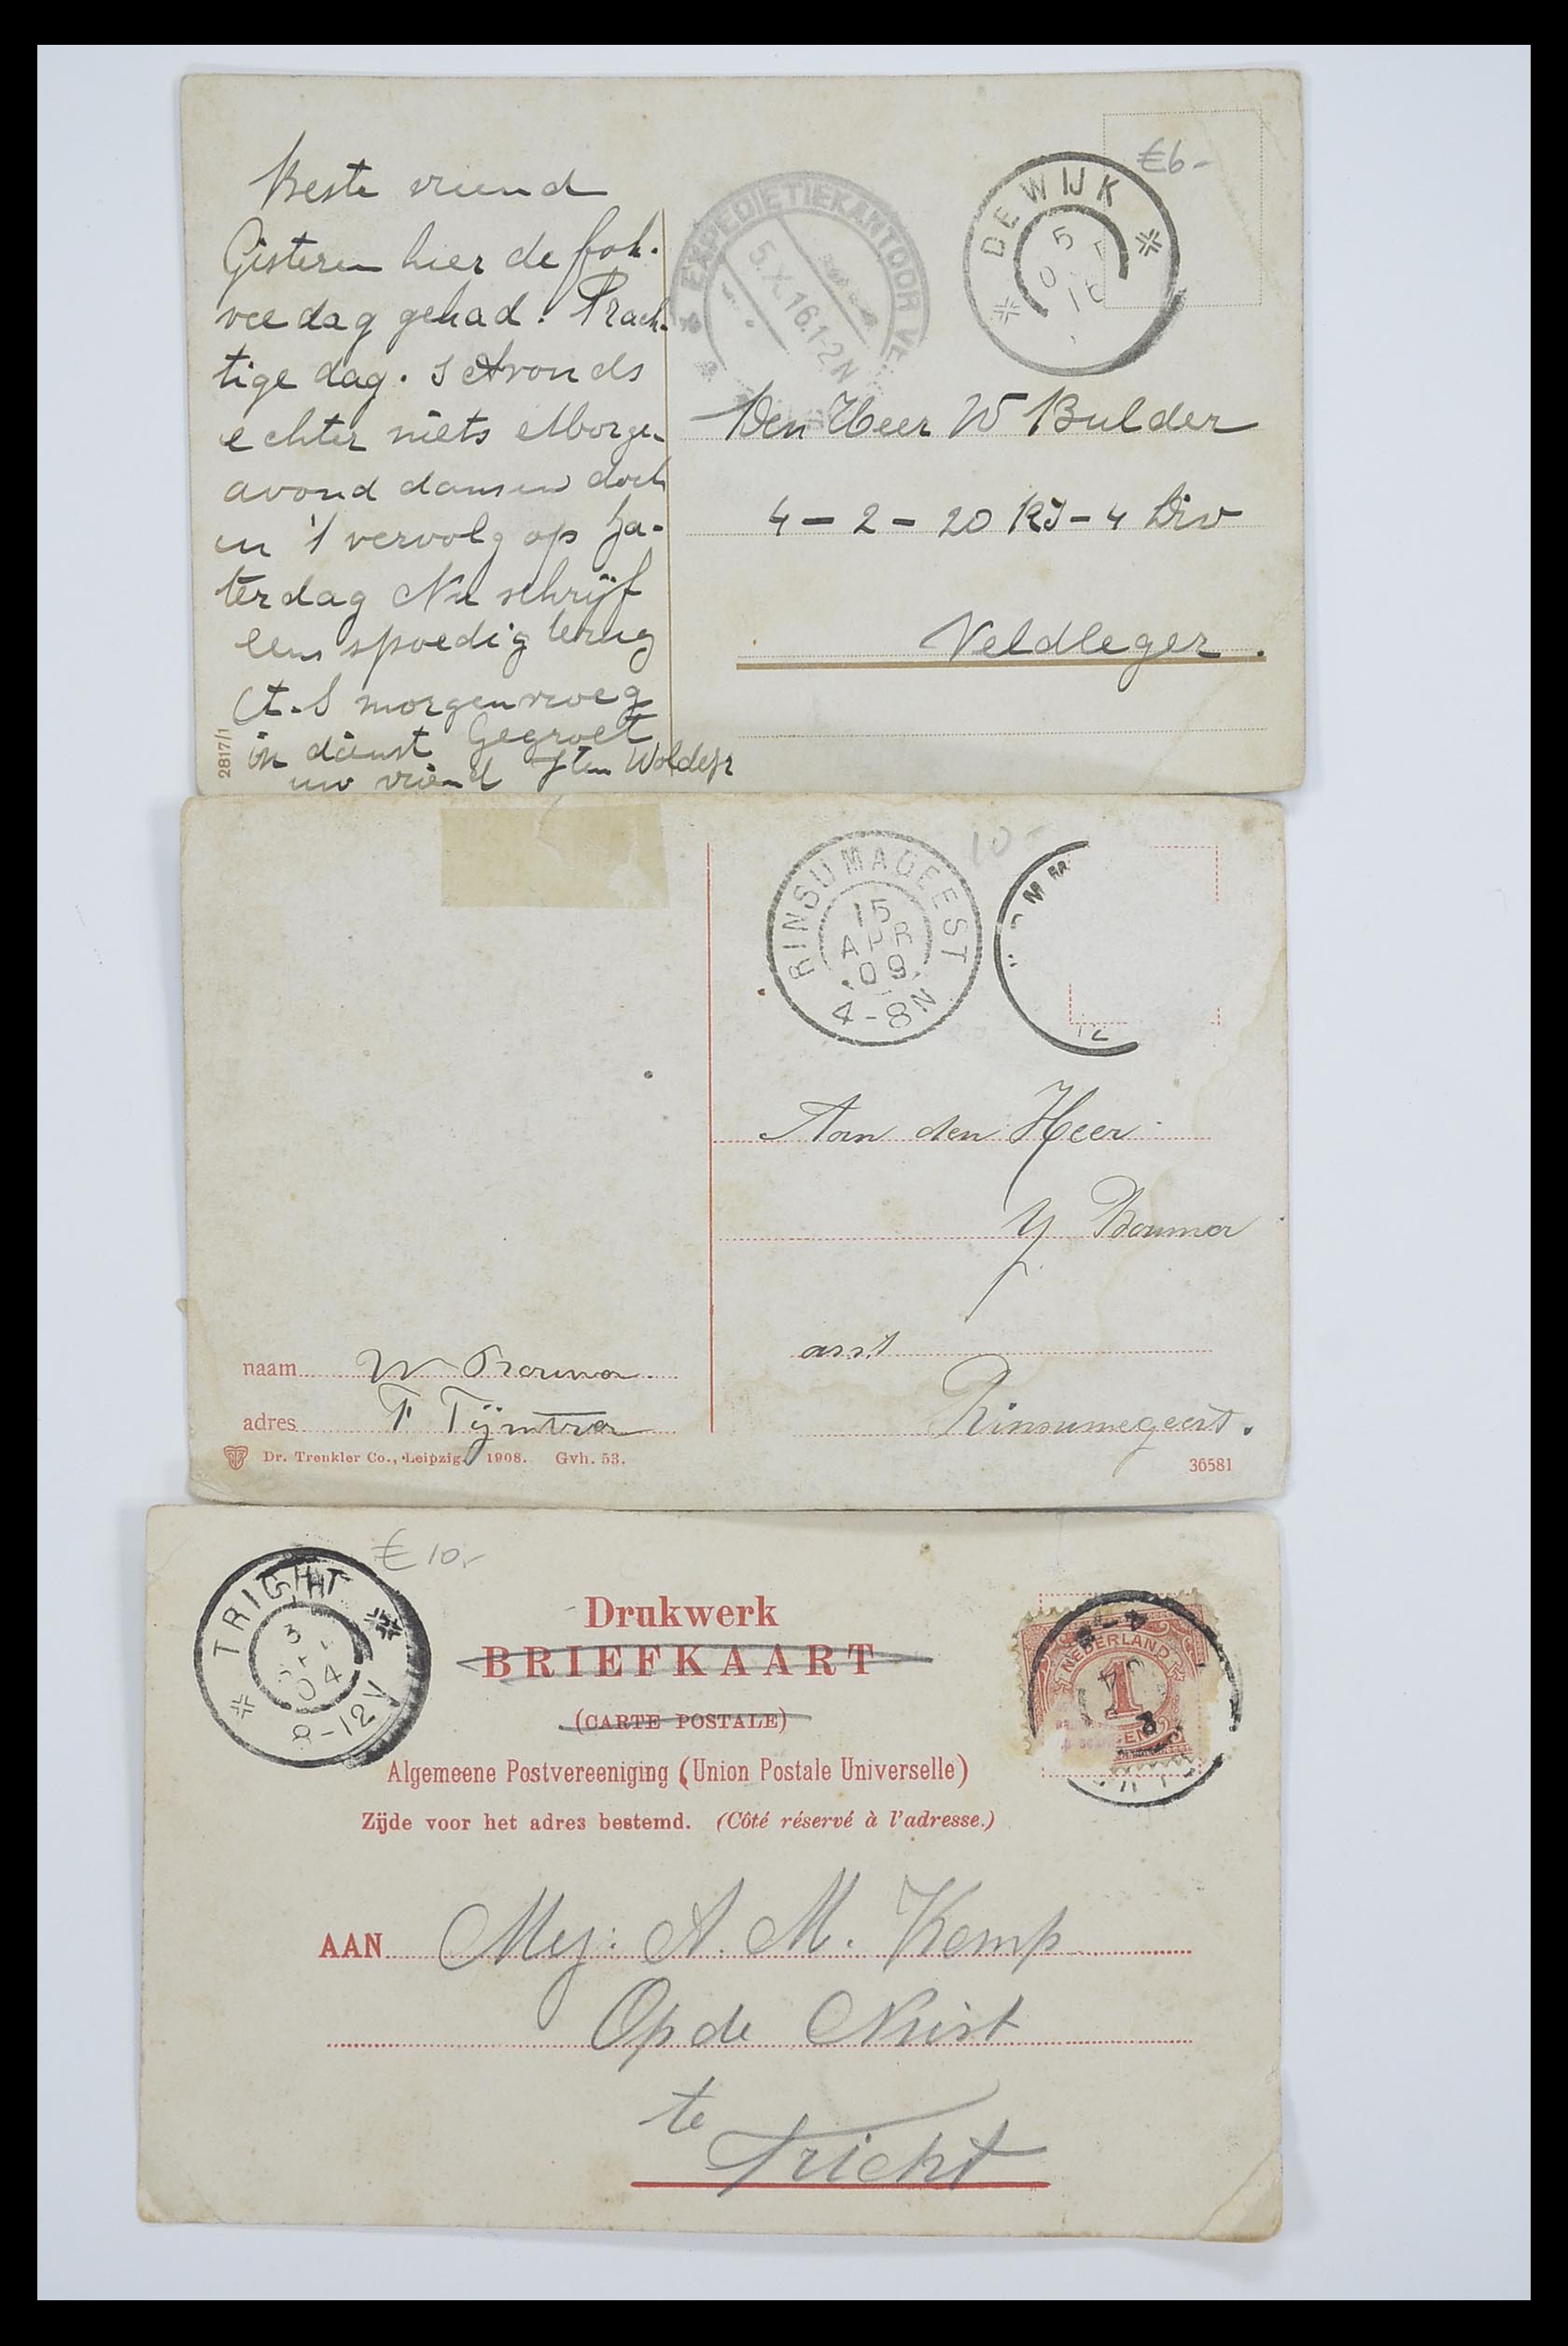 €6-
DE WIJK
5
16
EXPEDITIEKANTOOR VE
5.X.16.1-2N
Beste vriend
Gisteren hier de fok-
veedag gehad. Prach-
tige dag. s Avonds
echter niets Morge-
avond dansen doch
in 't vervolg op Za-
terdag Nu schrijf
eens spoedig terug
A.S morgenvroeg
in dienst Gegroet
uw vriend J ten Wolde Jz
2817/1
Den Heer W Bulder
4 - 2 - 20 RI - 4 Div
Veldleger.
10-
RINSUMAGEEST
15
APR
09
4-8N
Aan den Heer
Y Bouma
asst
Rinsumegeest.
naam W Bouma
adres F Tijmstra
Dr. Trenkler Co., Leipzig. 1908. Gvh. 53.
36581
€ 10,-
TRICHT
3
04
8-12V
Drukwerk
BRIEFKAART
(CARTE POSTALE)
Algemeene Postvereeniging (Union Postale Universelle)
Zijde voor het adres bestemd. (Côté réservé à l'adresse.)
NEDERLAND
1
CENT
AAN Mej: A. M. Kemp
Op de
te
Tricht